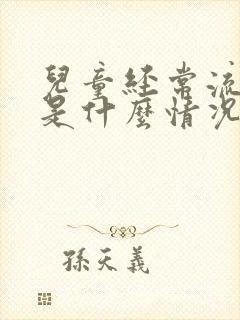 兒童經常流
是什麼情況
孫天義